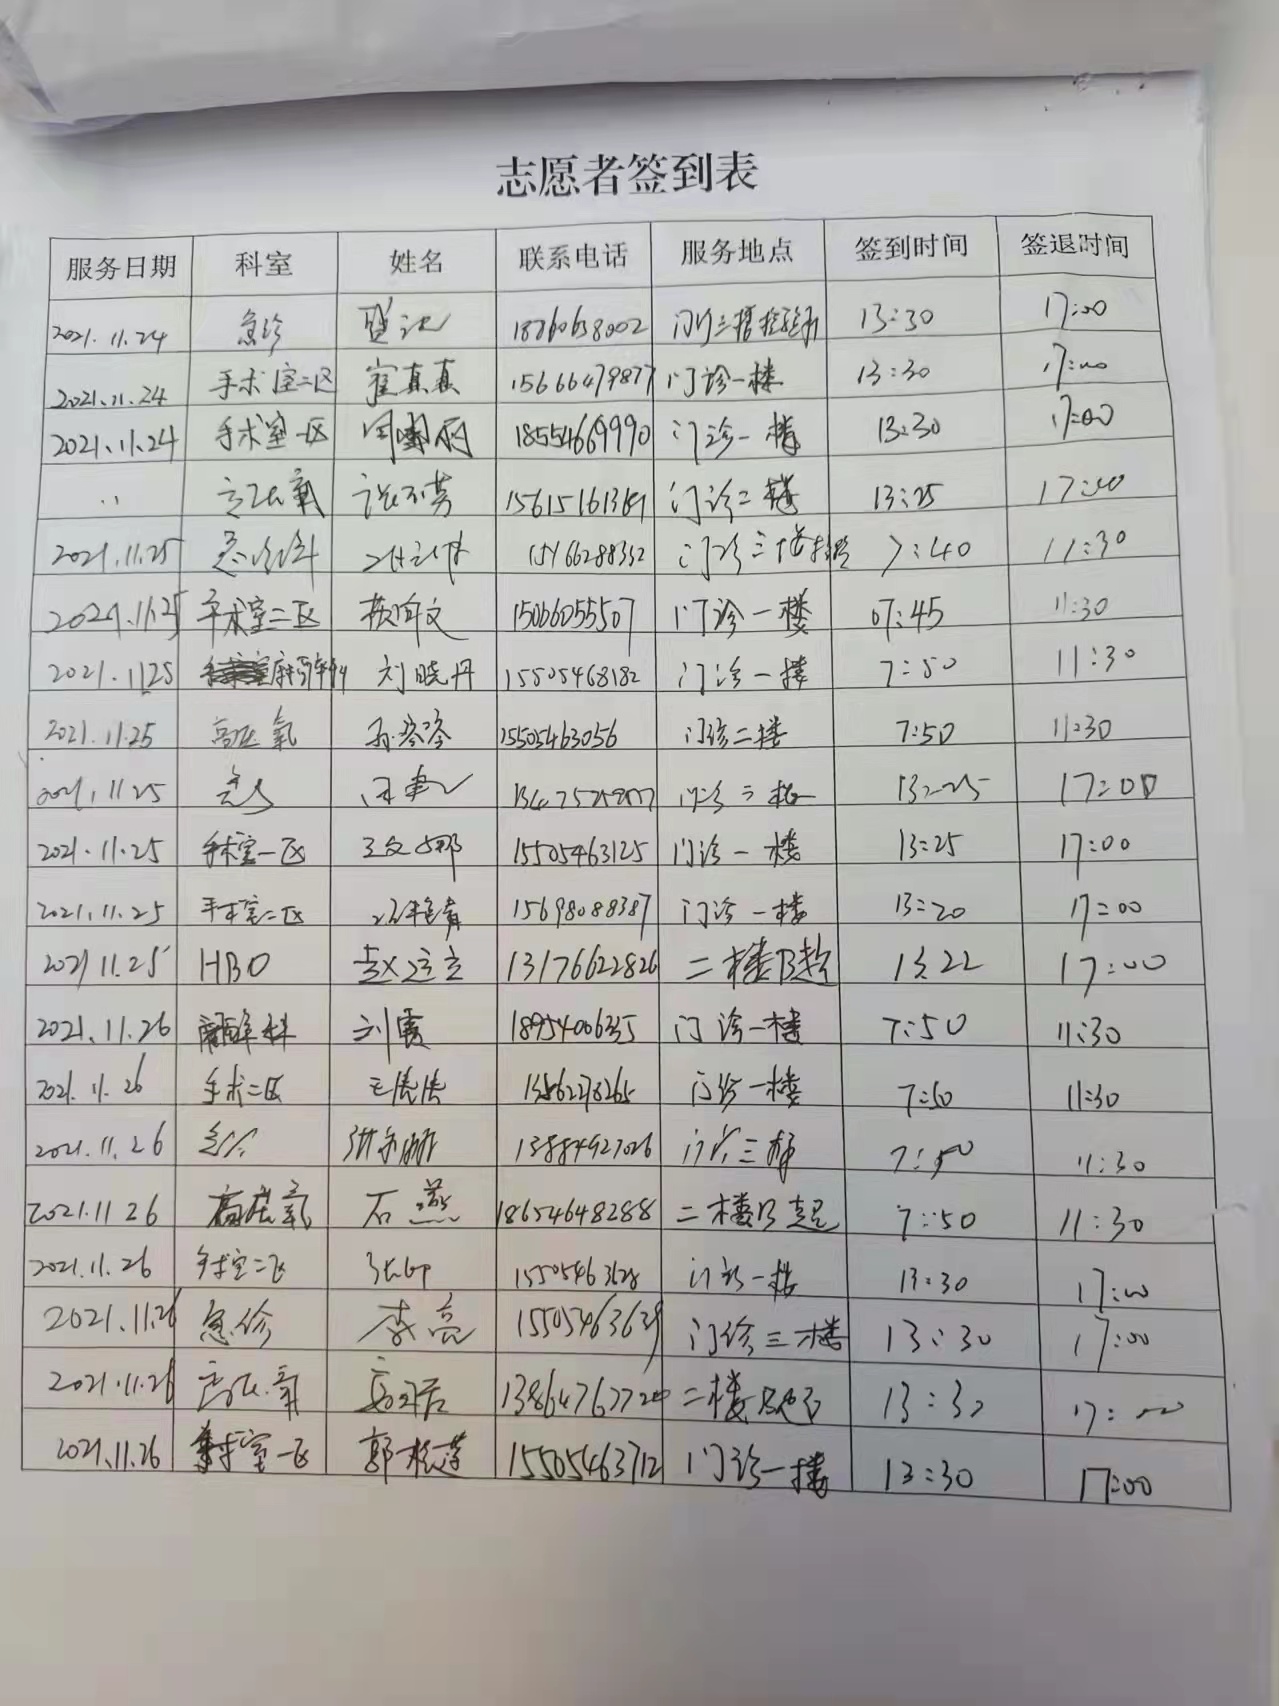 志愿者签到表
服务日期 科室 姓名 联系电话 服务地点 签到时间 签退时间
2021.11.24 急诊 18760658002 门诊三楼 13:30 17:00
2021.11.24 手术室二区 崔真真 15666479877 门诊一楼 13:30 17:00
2021.11.24 手术室一区 18554669990 门诊一楼 13:30 17:00
高压氧 15615161369 门诊二楼 13:25 17:00
2021.11.25 急诊科 15166288332 门诊三楼 7:40 11:30
2021.11.25 手术室二区 15066055507 门诊一楼 07:45 11:30
2021.1125 刘晓丹 15505468182 门诊一楼 7:50 11:30
2021.11.25 高压氧 15505463056 门诊二楼 7:50 11:30
2021.11 25 急诊 门诊三楼 13:25 17:00
2021.11.25 手术室一区 王文娜 15505463125 门诊一楼 13:25 17:00
2021.11.25 手术室二区 15698088387 门诊一楼 13:20 17:00
2021 11.25 HBO 赵运立 13176622826 二楼B超 13:22 17:00
2021.11.26 麻醉科 刘霞 18954006335 门诊一楼 7:50 11:30
2021.11.26 手术二区 13562178265 门诊一楼 7:50 11:30
2021.11.26 急诊 13884927026 门诊三楼 7:50 11:30
2021.11 26 高压氧 石燕 18654648288 二楼B超 7:50 11:30
2021.11.26 手术室二区 15505463628 门诊一楼 13:30 17:00
2021.11.26 急诊 李亮 15505463639 门诊三楼 13:30 17:00
2021.11.26 高压氧 二楼B超 13:30 17:00
2021.11.26 手术室一区 15505463712 门诊一楼 13:30 17:00